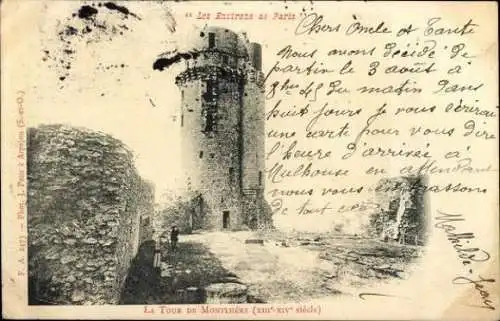 " Les Environs de Paris "
Chers Oncle et Tante
Nous avons décidé de
partir le 3 août à
8 hres 45 du matin dans
huit jours je vous écrirai
une carte pour vous dire
l'heure d'arrivée à
Mulhouse en attendant
nous vous embrassons
de tout
Mathilde
F. A. 2473 — Phot. J. à Arpajon (S.-et-O.)
LA TOUR DE MONTLHÉRY (XIIIe-XIVe siècle)